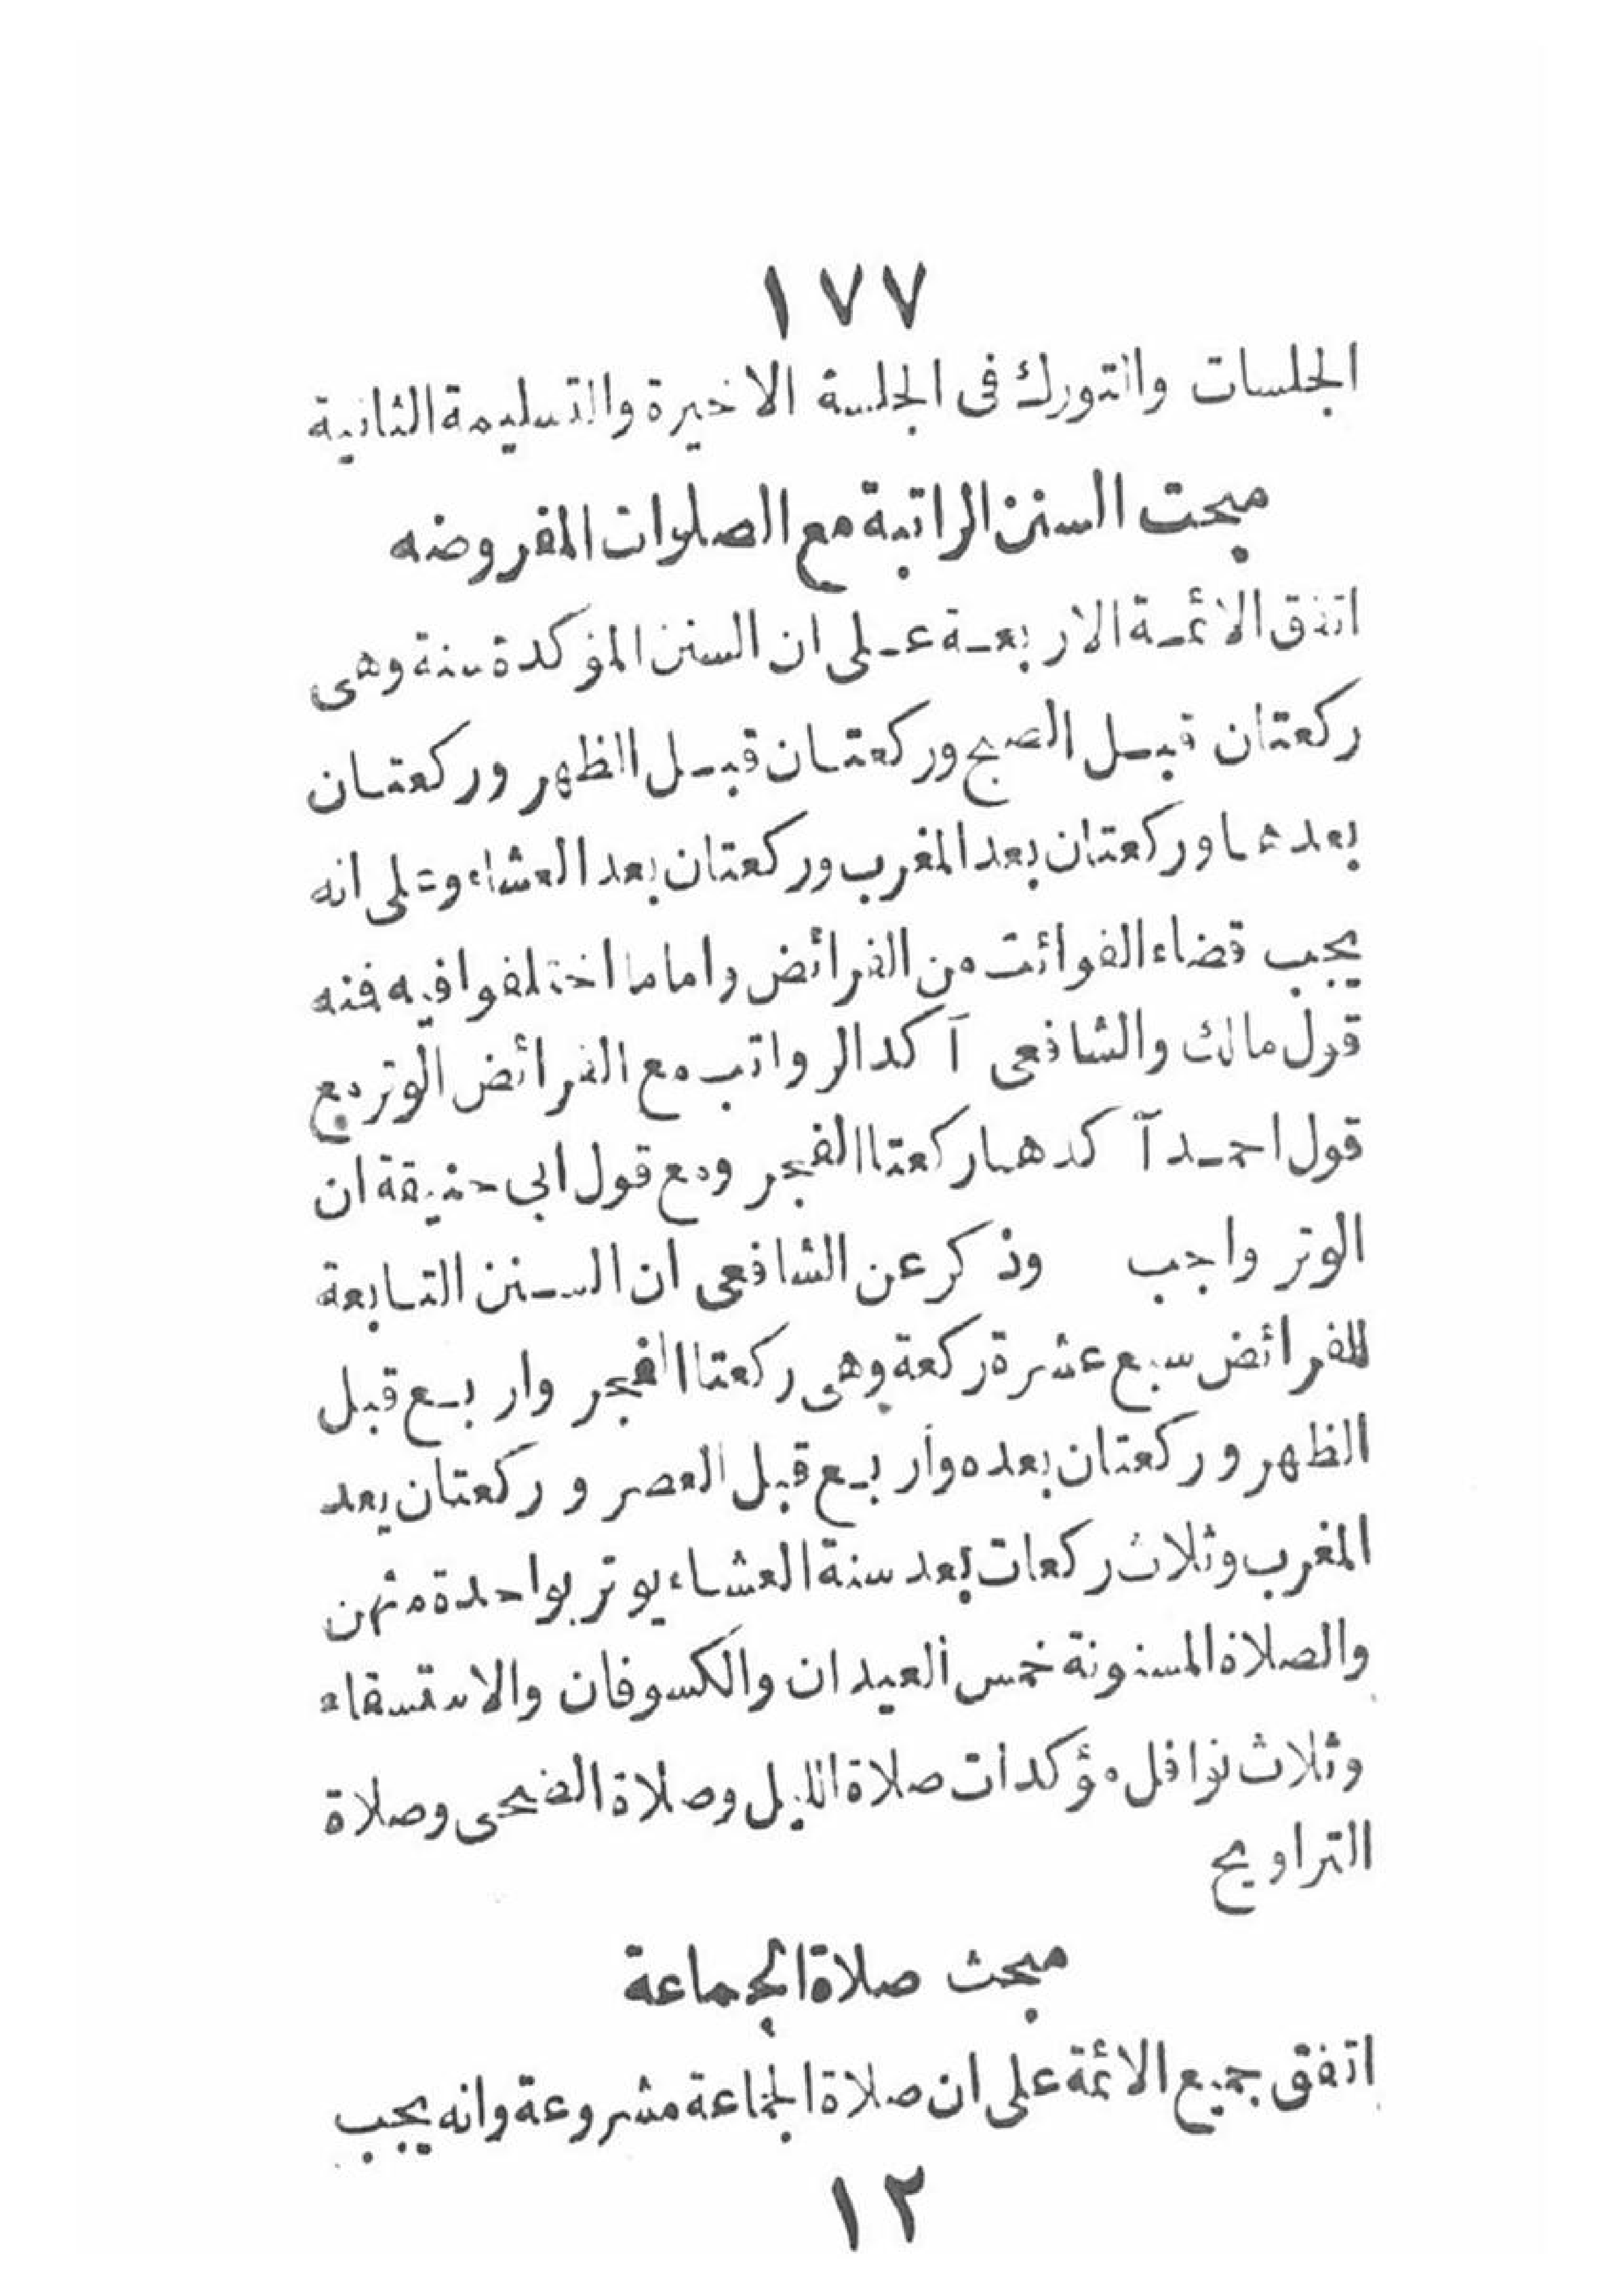 ١٧٧
الجلسات والتورك فى الجلسة الاخيرة والتسليمة الثانية
مبحت السنن الراتبة مع الصلوات المفروضه
اتفق الائمة الاربعة على ان السنن المؤكدة سنة وهى
ركعتان قبل الصبح وركعتان قبل الظهر وركعتان
بعدها وركعتان بعد المغرب وركعتان بعد العشاء وعلى انه
يجب قضاء الفوائت من الفرائض واما ما اختلفوا فيه فنه
قول مالك والشافعى آكد الرواتب مع الفرائض الوتر مع
قول احمد آكدها ركعتا الفجر ومع قول ابي حنيقة ان
الوتر واجب وذكر عن الشافعى ان السنن التابعة
للفرائض سبع عشرة ركعة وهى ركعتا الفجر واربع قبل
الظهر وركعتان بعده وأربع قبل العصر وركعتان يعد
المغرب وثلاث ركعات بعد سنة العشاء يوتر بواحدة منهن
والصلاة المسنونة خمس العيدان والكسوفان والاستسقاء
وثلاث نوافل مؤكدات صلاة الليل وصلاة الضحى وصلاة
التراويح
مبحث صلاة الجماعة
اتفق جميع الائمة على ان صلاة الجماعة مشروعة وانه يجب
١٢